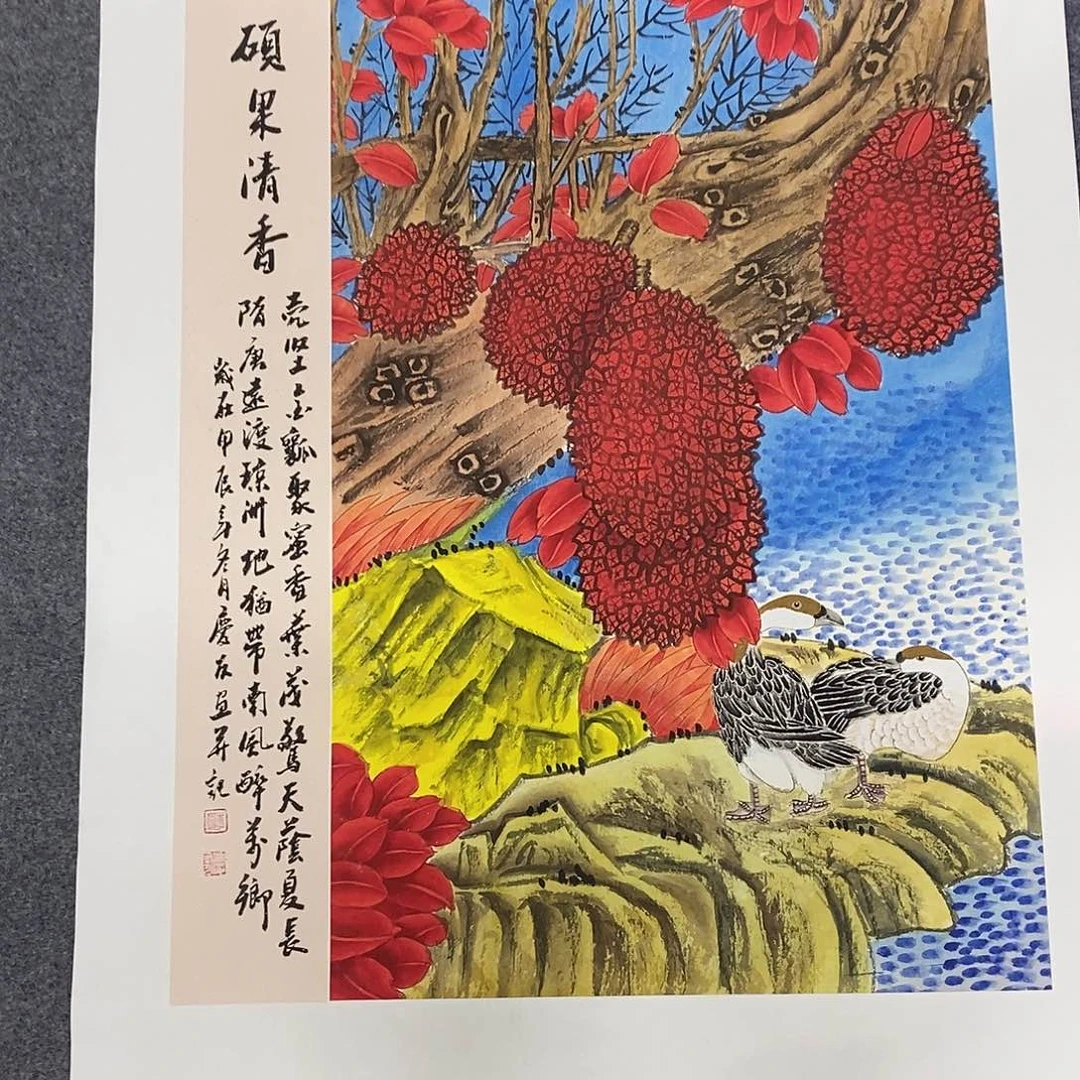 碩果清香
壳坚金瓤聚蜜香葉茂驚天蔭夏長
隋唐遠渡琼洲地猶帶南風醉萬鄉
歲在甲辰年冬月慶友画并記